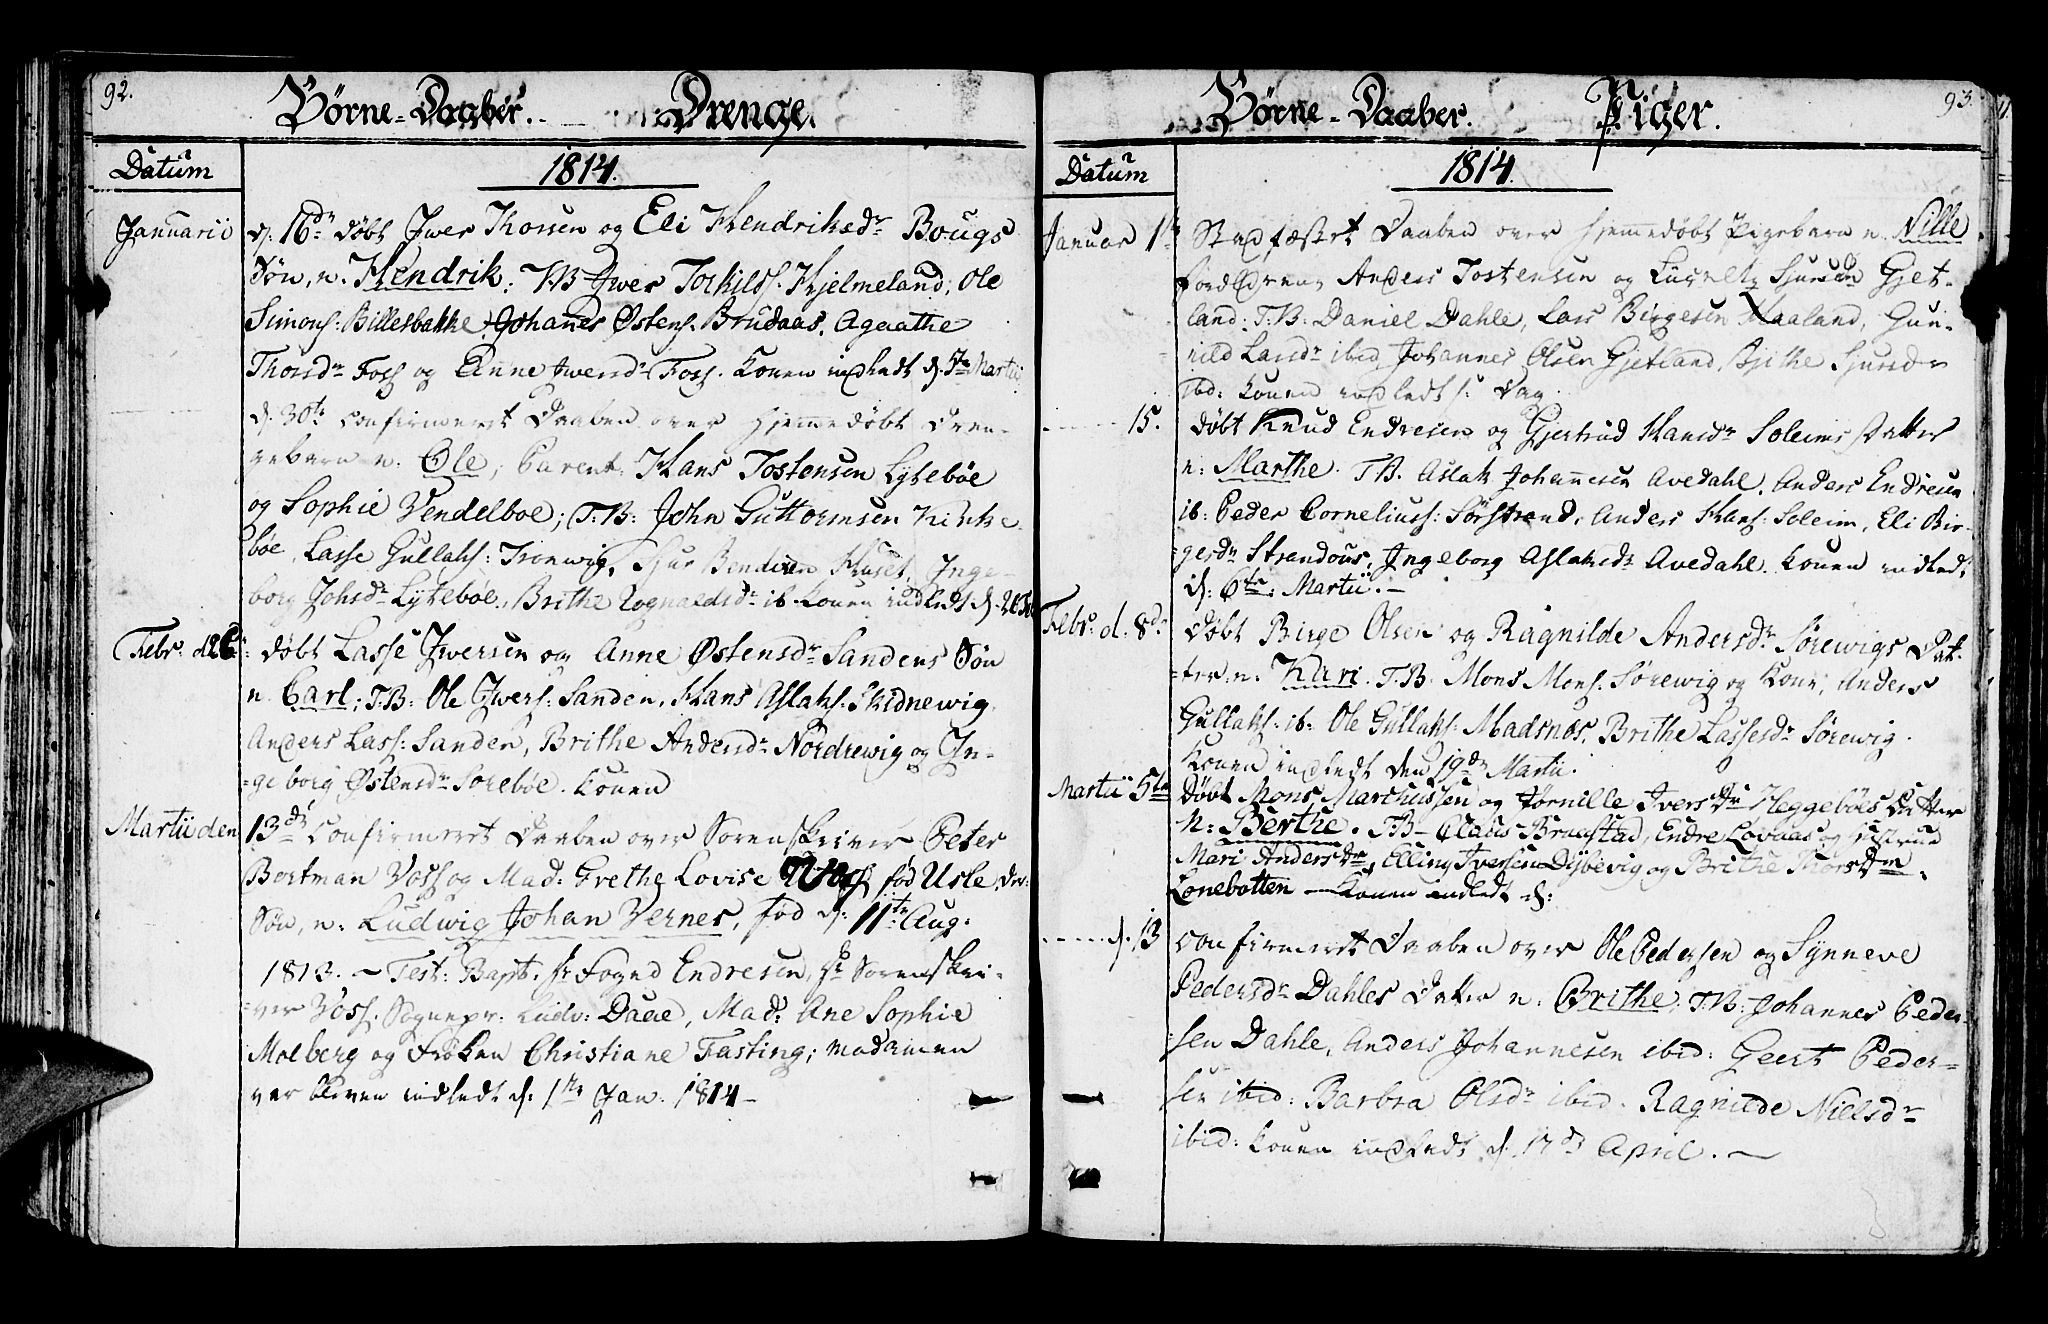 92.
Börne-Daaber. Drenge.
Datum
1814.
Januarii d. 16de döbt Iwer Thorsen og Eli Hendriksdr Bougs
Sön, n. Hendrik; TB Iwer Torkilds. Hjelmeland, Ole
Simons: Billesbakke, Johanes Østens. Brudaas, Agaathe
Thorsdr Foss og Anne Iwersdr Foss. Konen indledt d. 5te Martii
d. 30te confirmeret Daaben over hjemmedöbt Dren-
gebarn n. Ole, Parent: Hans Tostensen Lytebøe
og Sophie Vendelboe; T:B: John Guttormsen Kirke-
bøe, Lasse Gullaks: Tronwig, Siur Bendixen Huset, Inge-
borg Johsdr Lytebøe, Brithe Rognaldsdr ib. Konen indledt d.
Febr. d. 26 döbt Lasse Iwersen og Anne Østensdr Sandens Sön
n. Carl; T:B: Ole Iwers: Sanden, Hans Aslaks. Skidnewig
Anders Lass: Sanden, Brithe Andersdr Nordrewig og In-
-geborg Østensdr Sorebøe. Konen
Martii den 13de Confirmeret Daaben over Sorenskriver Peter
Bertman Voss og Mad: Grethe Lovise Voss föd Usle
Sön, n: Ludwig Johan Vernes, föd d: 11te Aug:
1813. ~ Test: Bapt: Hr Fogd Endresen, Hr Sorenskri-
-ver Voss. Sognepr. Ludv: Daae, Mad: Ane Sophie
Molberg og Fröken Christiane Fasting; madamen
var bleven indledt d: 1te Jan. 1814 -
93.
Börne-Daaber. Piger.
Datum
1814.
Januar 1te Stadfæstet Daaben over hjemmedöbt Pigebarn n. Nille
Forældrene Anders Tostensen og Sjursdr Gjet-
land: T:B: Daniel Dahle, Lars Birgesen Haaland, Gun-
nild Larsdr ibid Johannes Olsen Gjetland, Brithe Sjursdr
ibd: Konen indledt s: Dag.
15. döbt Knud Endresen og Gjertrud Hansdr Soleims Datter
n: Marthe. T.B. Aslak Johannesen Avedahl, Anders Endresen
ib: Peder Corneliuss: Sörstrand, Anders Hans: Soleim, Eli Bir-
-gersdr Strandous, Ingeborg Aslaksdr Avedahl. Konen indledt
d: 6te: Martii. -
Febr: d. 8de döbt Birge Olsen og Ragnilde Andersdr Sörewigs Dat-
-ter n. Kari. T.B. Mons Mons. Sörewig og Kone, Anders
Gullaks: ib: Ole Gullaks: Madsnos, Brithe Lassesdr Sörewig.
Konen indledt den 19de Martii.
Martii 5te Döbt Mons Marthussen og Jørnille Iversdr Heggebøes Datter
N: Berthe. TB - Claus Braastad, Endre Lovaas og Hustrue
Mari Andersdr, Elling Iversen Dybevig og Brithe Thorsdr
Lonebotten - Konen indledt d:
d. 13 Confirmeret Daaben over Ole Pedersen og Synneve
Pedersdr Dahles Datter n: Brithe, T:B: Johannes Peder-
-sen Dahle, Anders Johannesen ibid: Geert Peder-
sen ibid: Barbra Olsdr ibid. Ragnilde Nielsdr
ibid: Konen indledt d. 17de April. -